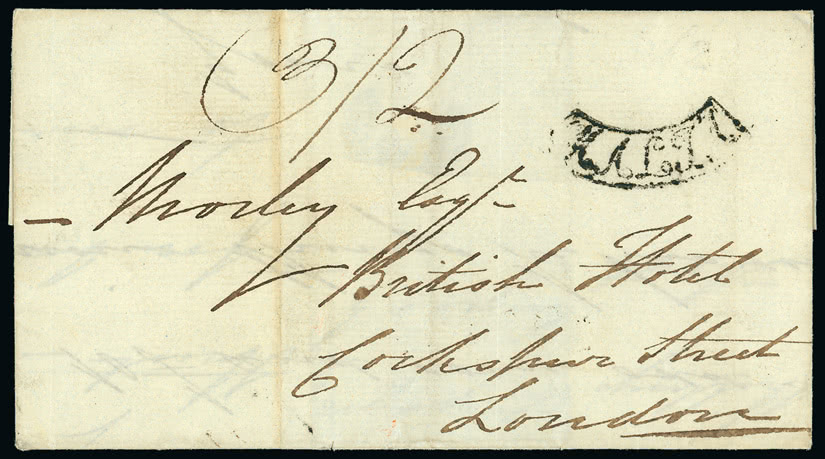 3/2
MALTA
— Morley Esqr
British Hotel
Cockspur Street
London